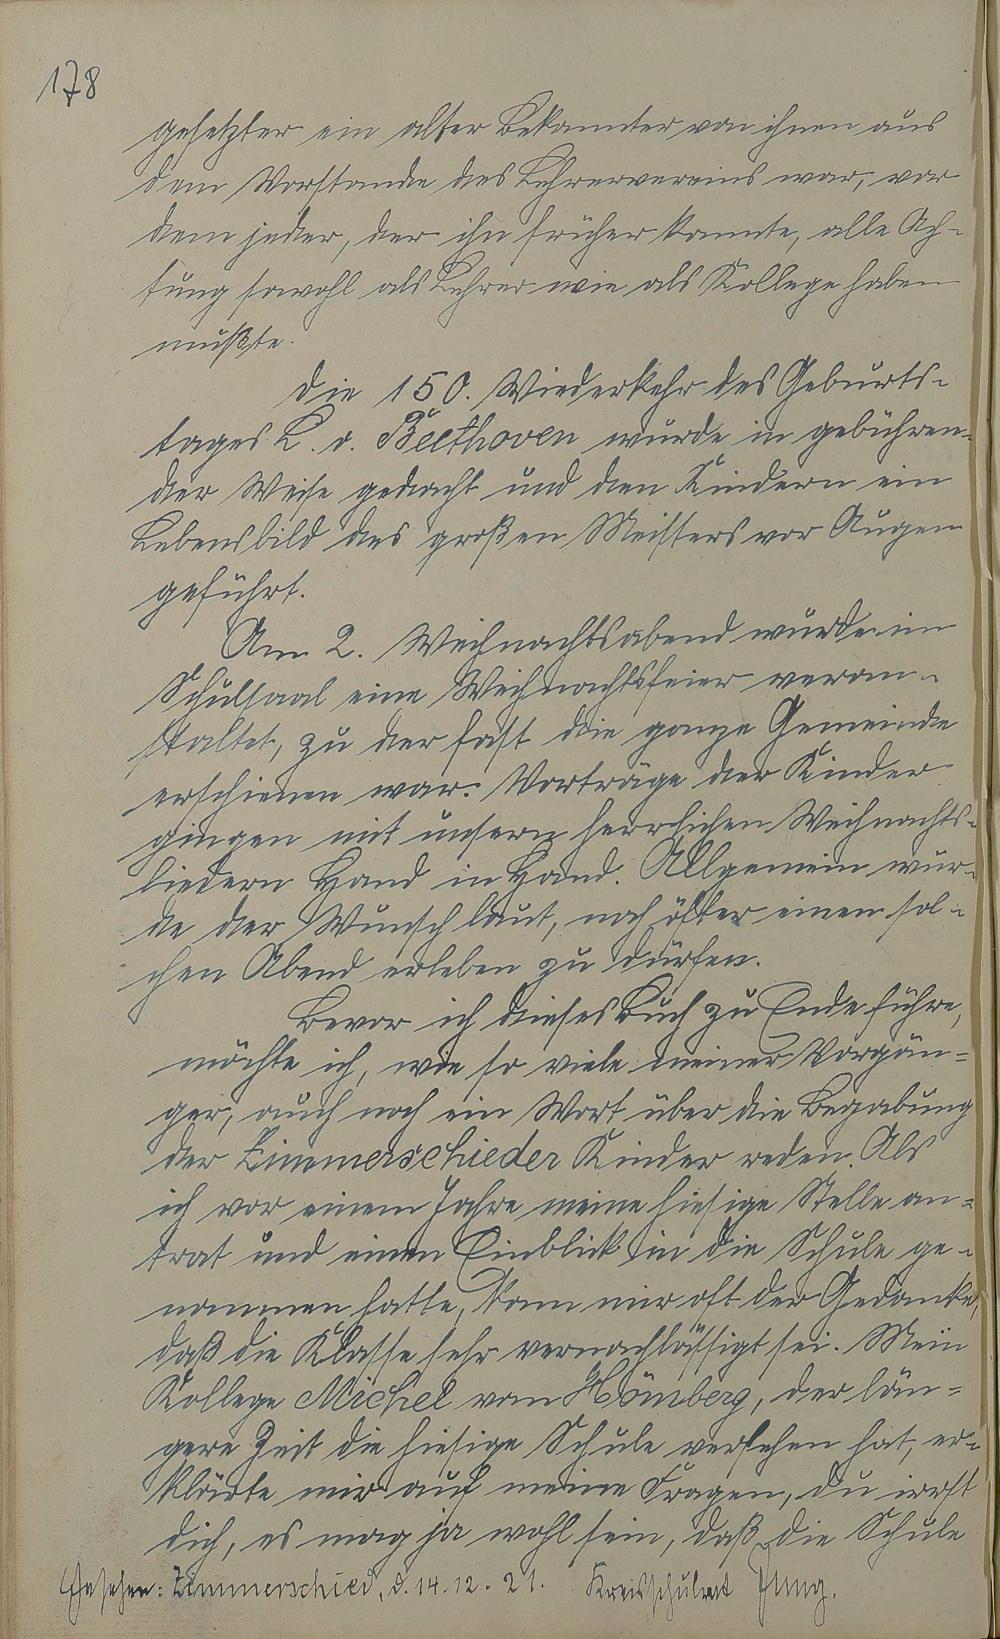 178
gesetzter ein alter Bekannter von ihnen aus
dem Vorstande des Lehrervereins war, vor
dem jeder, der ihn früher kannte, alle Ach-
tung sowohl als Lehrer wie als Kollege haben
mußte.
Die 150. Wiederkehr des Geburts-
tages L. v. Beethoven wurde in gebühren-
der Weise gedacht und den Kindern ein
Lebensbild des großen Meisters vor Augen
geführt.
Am 2. Weihnachtsabend wurde im
Schulsaal eine Weihnachtsfeier veran-
staltet, zu der fast die ganze Gemeinde
erschienen war. Vorträge der Kinder
gingen mit unsern herrlichen Weihnachts-
liedern Hand in Hand. Allgemein wur-
de der Wunsch laut, noch öfter einen sol-
chen Abend erleben zu dürfen.
Bevor ich dieses Buch zu Ende führe,
möchte ich, wie so viele meiner Vorgän-
ger, auch noch ein Wort über die Begabung
der Zimmerschieder Kinder reden. Als
ich vor einem Jahre meine hiesige Stelle an-
trat und einen Einblick in die Schule ge-
nommen hatte, kam mir oft der Gedanke,
daß die Klasse sehr vernachlässigt sei. Mein
Kollege Michel vom Hömberg, der län-
gere Zeit die hiesige Schule versehen hat, er-
klärte mir auf meine Fragen, du irrst
dich, es mag ja wohl sein, daß die Schule
Gesehen: Zimmerschied, d. 14.12.21. Kreisschulrat Jung.